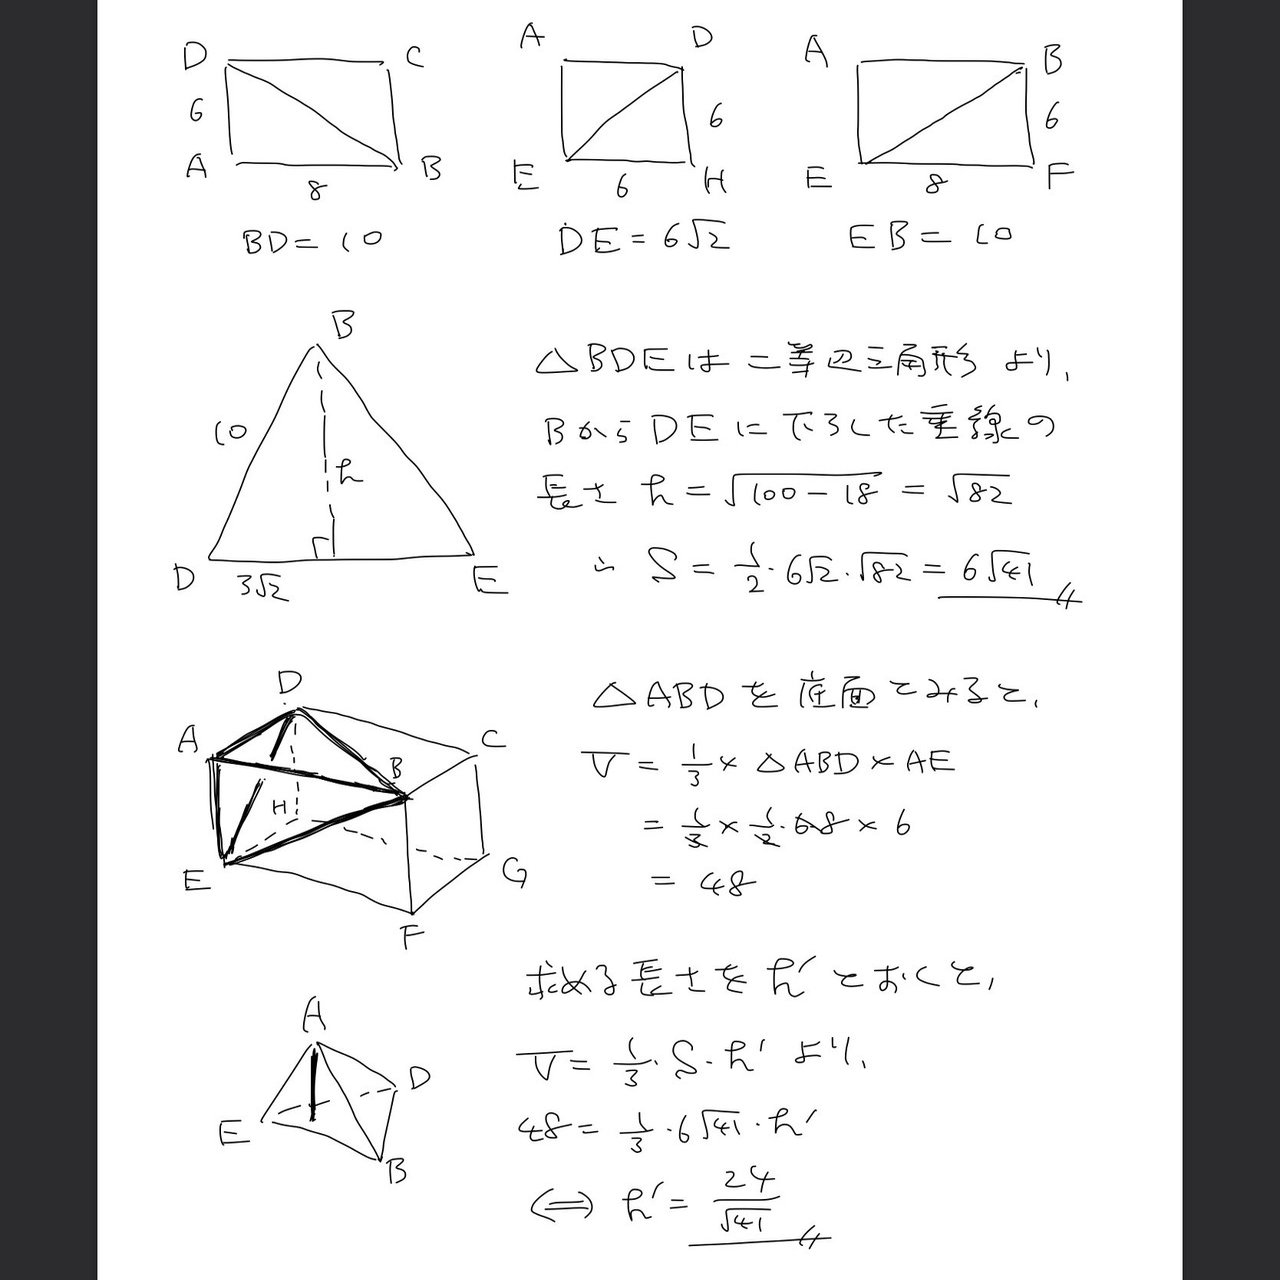 D C
6
A B
8
BD = 10
A D
6
E H
6
DE = 6√2
A B
6
E F
8
EB = 10
B
10
h
D 3√2 E
△BDEは二等辺三角形より,
BからDEに下ろした垂線の
長さ h = √100-18 = √82
∴ S = 1/2・6√2・√82 = 6√41
D
A C
B
H
E G
F
△ABDを底面とみると,
V = 1/3 × △ABD × AE
= 1/3 × 1/2・6・8 × 6
= 48
A
D
E
B
求める長さを h′ とおくと,
V = 1/3・S・h′ より,
48 = 1/3・6√41・h′
⇔ h′ = 24/√41